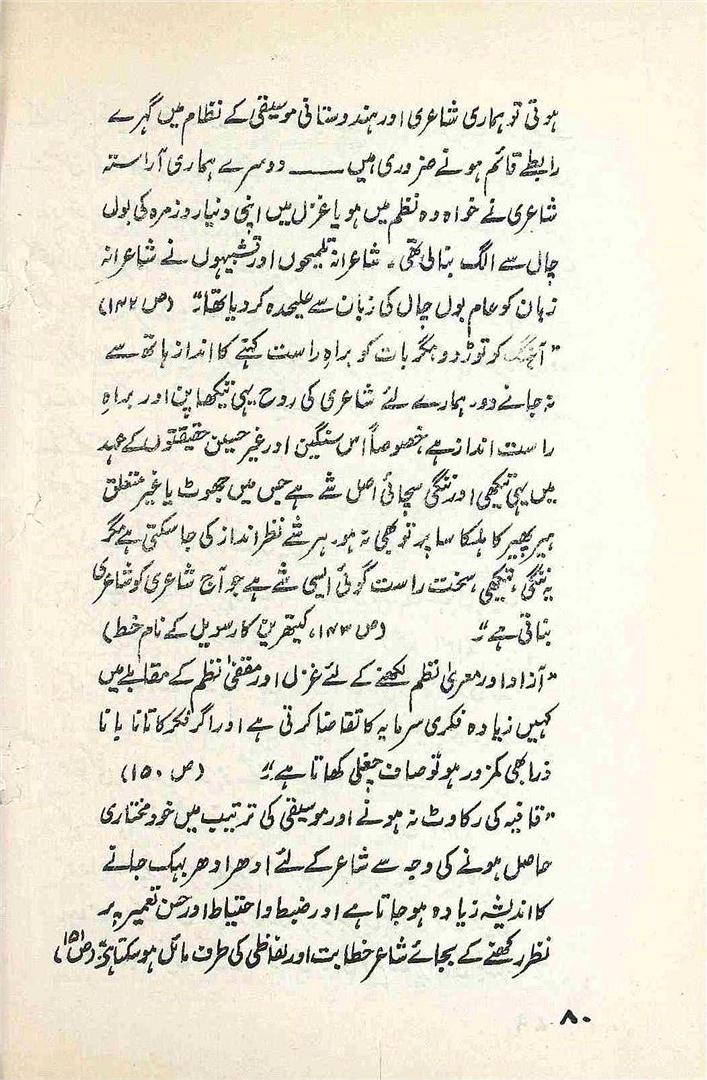 ہوتی تو ہماری شاعری اور ہندوستانی موسیقی کے نظام میں گہرے
رابطے قائم ہونے ضروری ہیں ـــــــ دوسرے ہماری آراستہ
شاعری نے خواہ وہ نظم میں ہو یا غزل میں اپنی دنیا روزمرہ کی بول
چال سے الگ بنالی تھی۔ شاعرانہ تلمیحوں اور تشبیہوں نے شاعرانہ
زبان کو عام بول چال کی زبان سے علیحدہ کر دیا تھا۔" (ص ۱۴۲)
"آہنگ کو توڑ دو مگر بات کو براہِ راست کہنے کا انداز ہاتھ سے
نہ جانے دو۔ ہمارے لئے شاعری کی روح یہی تیکھاپن اور براہِ
راست انداز ہے، خصوصاً اس سنگین اور غیر حسین حقیقتوں کے عہد
میں یہی تیکھی اور ننگی سچائی اصل شے ہے جس میں جھوٹ یا غیر متعلق
ہیر پھیر کا ہلکا سا پرتو بھی نہ ہو۔ ہر شے نظر انداز کی جاسکتی ہے مگر
یہ ننگی، تیکھی، سخت راست گوئی ایسی شے ہے جو آج شاعری کو شاعری
بناتی ہے۔" (ص ۱۴۳، کیتھرین کارسویل کے نام خط)
"آزاد اور معریٰ نظم لکھنے کے لئے غزل اور مقفیٰ نظم کے مقابلے میں
کہیں زیادہ فکری سرمایہ کا تقاضا کرتی ہے اور اگر فکر کا تانا بانا
ذرا بھی کمزور ہو تو صاف چغلی کھاتا ہے۔" (ص ۱۵۰)
"قافیہ کی رکاوٹ نہ ہونے اور موسیقی کی ترتیب میں خود مختاری
حاصل ہونے کی وجہ سے شاعر کے لئے ادھر ادھر بہک جانے
کا اندیشہ زیادہ ہو جاتا ہے اور ضبط و احتیاط اور حسن تعمیر پر
نظر رکھنے کے بجائے شاعر خطابت اور لفاظی کی طرف مائل ہو سکتا ہے" (ص ۱۵۱)
۸۰